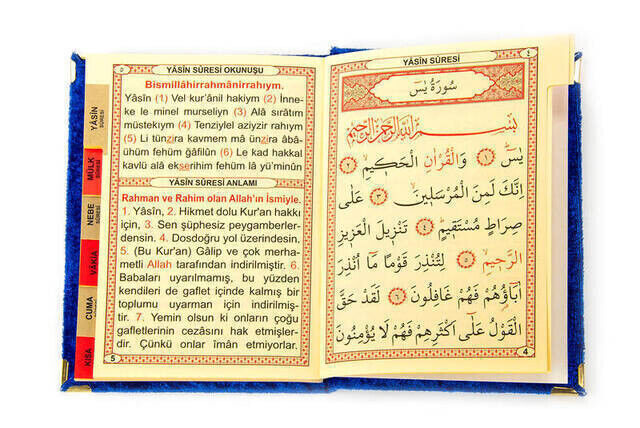 YÂSİN SÛRESİ OKUNUŞU
Bismillâhirrahmânirrahıym.
Yâsîn (1) Vel kur'ânil hakiym (2) İnne-
ke le minel murseliyn (3) Alâ sırâtım
müstekıym (4) Tenziylel aziyzir rahıym
(5) Li tünzira kavmem mâ ünzira âbâ-
ühüm fehüm ğâfilûn (6) Le kad hakkal
kavlü alâ ekserihim fehüm lâ yü'minûn
YÂSİN SÛRESİ ANLAMI
Rahman ve Rahim olan Allah'ın ismiyle.
1. Yâsîn, 2. Hikmet dolu Kur'an hakkı
için, 3. Sen şüphesiz peygamberler-
densin. 4. Dosdoğru yol üzerindesin.
5. (Bu Kur'an) Gâlip ve çok merha-
metli Allah tarafından indirilmiştir. 6.
Babaları uyarılmamış, bu yüzden
kendileri de gaflet içinde kalmış bir
toplumu uyarman için indirilmiş-
tir. 7. Yemin olsun ki onların çoğu
gafletlerinin cezasını hak etmişler-
dir. Çünkü onlar îmân etmiyorlar.
5
YÂSİN SÛRESİ
MÜLK
NEBE SÛRESİ
VÂKIA
CUMA
KISA
YÂSİN SÛRESİ
٤
سُورَةُ يٰسٓ
بِسْمِ اللّٰهِ الرَّحْمٰنِ الرَّحِيمِ
يٰسٓ ﴿١﴾ وَالْقُرْاٰنِ الْحَكِيمِ ﴿٢﴾
اِنَّكَ لَمِنَ الْمُرْسَلِينَ ﴿٣﴾ عَلٰى
صِرَاطٍ مُسْتَقِيمٍ ﴿٤﴾ تَنْزِيلَ الْعَزِيزِ
الرَّحِيمِ ﴿٥﴾ لِتُنْذِرَ قَوْمًا مَٓا اُنْذِرَ
اٰبَٓاؤُهُمْ فَهُمْ غَافِلُونَ ﴿٦﴾ لَقَدْ حَقَّ
الْقَوْلُ عَلٰٓى اَكْثَرِهِمْ فَهُمْ لَا يُؤْمِنُونَ
4